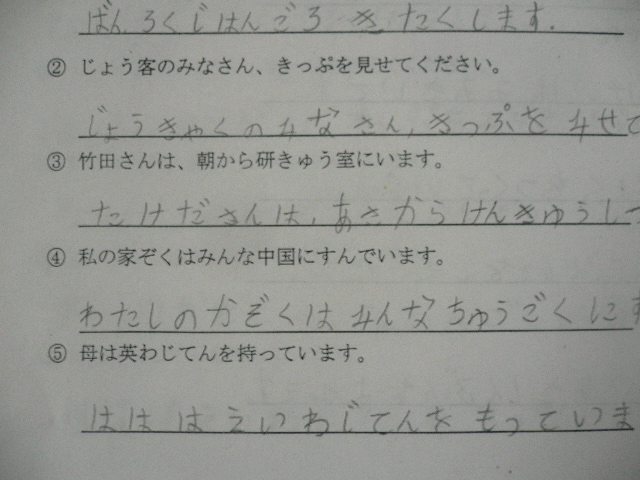 ばん ろくじはんごろ きたくします.
② じょう客のみなさん、きっぷを見せてください。
じょうきゃくのみなさん,きっぷを みせて
③ 竹田さんは、朝から研きゅう室にいます。
たけださんは,あさからけんきゅうしつ
④ 私の家ぞくはみんな中国にすんでいます。
わたしのかぞくはみんなちゅうごくにす
⑤ 母は英わじてんを持っています。
はは は えいわじてんを もっていま